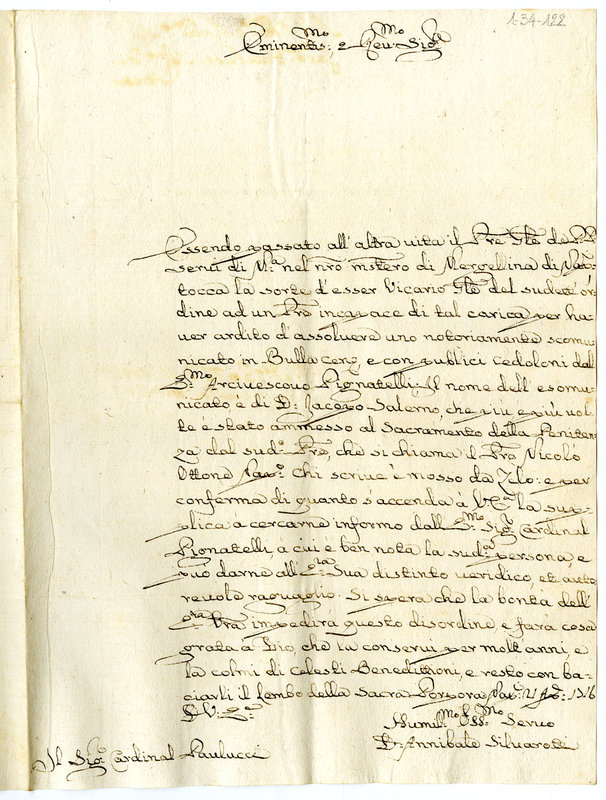 1-34-122
Eminentis:mo e Reu:mo Sig.r
Essendo passato all'altra uita il Pre Gñle de PP
serui di M.a nel nrõ mstero di Mergellina di Nap.
tocca la sorte d'esser Vicario Gñle del sudett'ór
dine ad un Pre incapace di tal carica per ha
uer ardito d'assoluere uno notoriamente scomu
nicato in Bulla cenę, e con publici cedoloni dall'
E:mo Arciuescouo Pignatelli: Il nome dell'escomu
nicato è di D: Jacopo Salerno, che più e più uol
te è stato ammesso al Sacramento della Peniten
za dal sud.o Pre, che si chiama il Pre Nicolò
Ottone Nap.o Chi scriue è mosso da Zelo: e per
conferma di quanto s'accenda à V.E.a la sup
plica à cercarne informo dall'E:mo Sig.r Cardinal
Pignatelli a cui è ben nota la sud.a persona, e
può darne all'E.za Sua distinto ueridico, et auto
reuole raguaglio: Si spera che la bontà dell'
E.za Vrã impedirà questo disordine, e farà cosa
grata à Dio, che la conserui per molt'anni, e
la colmi di celesti Benedittioni, e resto con ba
ciarli il lembo della Sacra Porpora Nap: 21 1716
D.V.E.za
Humil:mo Oss:mo Seruo
D: Annibale Siluarode
Il Sig.r Cardinal Paulucci